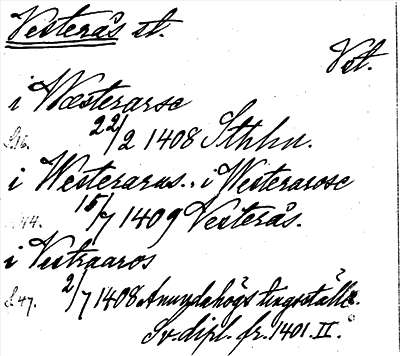 Vesterås st.
Vst.
i Wæsterarse
S.16. 22/2 1408 Sthlm.
i Westerarus.. i Westerarose
S.44. 15/7 1409 Vesterås.
i Vestraaros
S.47. 2/7 1408 Anundshögs tingsställe.
Sv. dipl. fr. 1401. II.